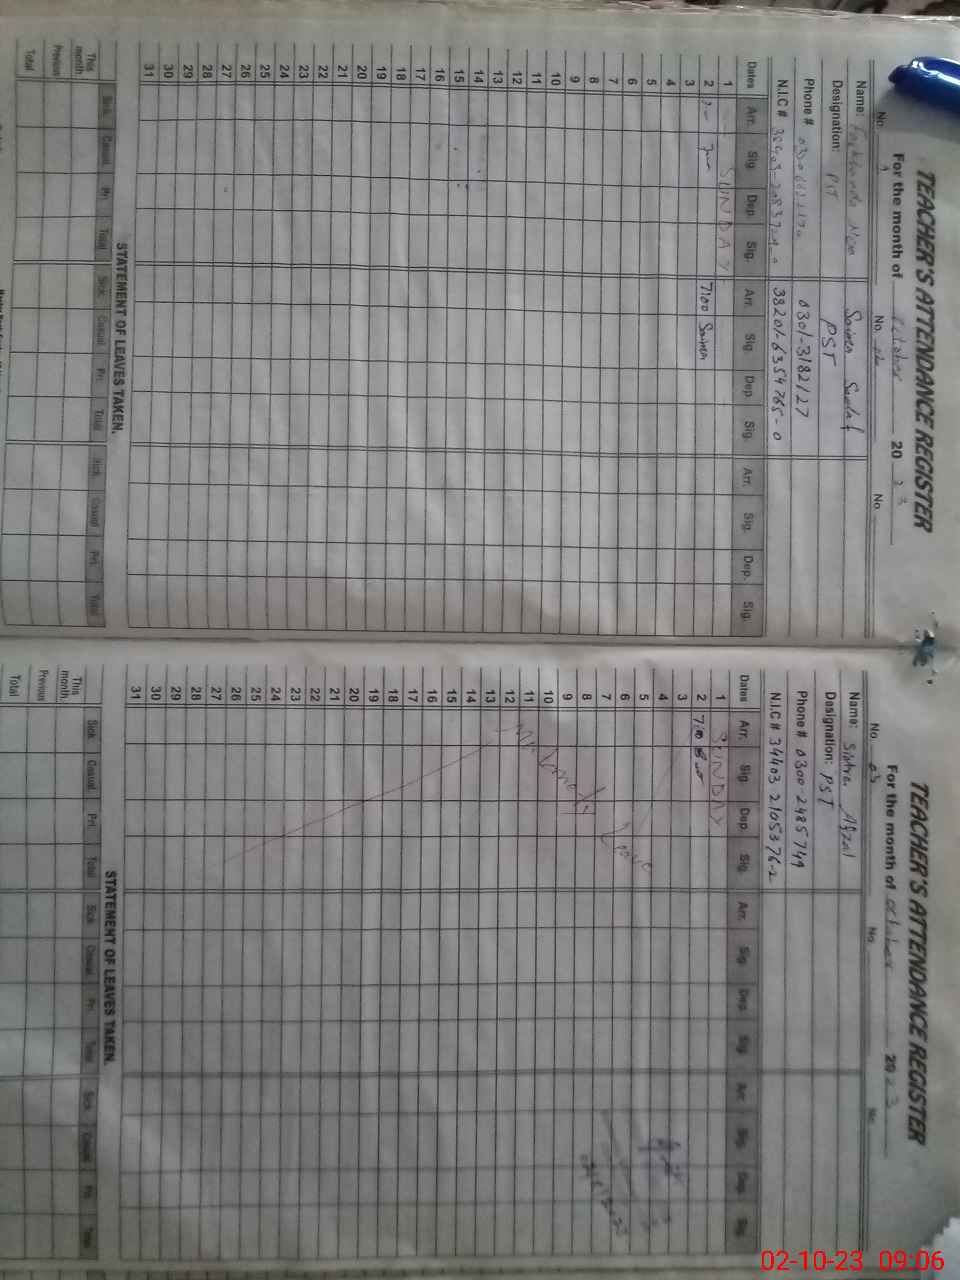 TEACHER'S ATTENDANCE REGISTER
For the month of October 2023
No. 1 No. 02 No.
Name: Saima Sadaf
Designation: PST PST
Phone # 0301-3182127
N.I.C # 38201-6354765-0
Dates Arr. Sig. Dep. Sig. Arr. Sig. Dep. Sig. Arr. Sig. Dep. Sig.
1 SUNDAY
2 7:00 Saima
3
4
5
6
7
8
9
10
11
12
13
14
15
16
17
18
19
20
21
22
23
24
25
26
27
28
29
30
31
STATEMENT OF LEAVES TAKEN.
Sick Casual Pri. Total Sick Casual Pri. Total Sick Casual Pri. Total
This month
Previous
Total
TEACHER'S ATTENDANCE REGISTER
For the month of October 2023
No. 03 No. No.
Name: Afzal
Designation: PST
Phone # 0300-2485749
N.I.C # 34403 2105376-2
Dates Arr. Sig. Dep. Sig. Arr. Sig. Dep. Sig. Arr. Sig. Dep. Sig.
1 SUNDAY
2 7:00
3
4
5
6
7
8
9
10
11
12
13
14
15
16
17
18
19
20
21
22
23
24
25
26
27
28
29
30
31
Leave
STATEMENT OF LEAVES TAKEN.
Sick Casual Pri. Total Sick Casual Pri. Total Sick Casual Pri. Total
This month.
Previous
Total
02-10-23 09:06